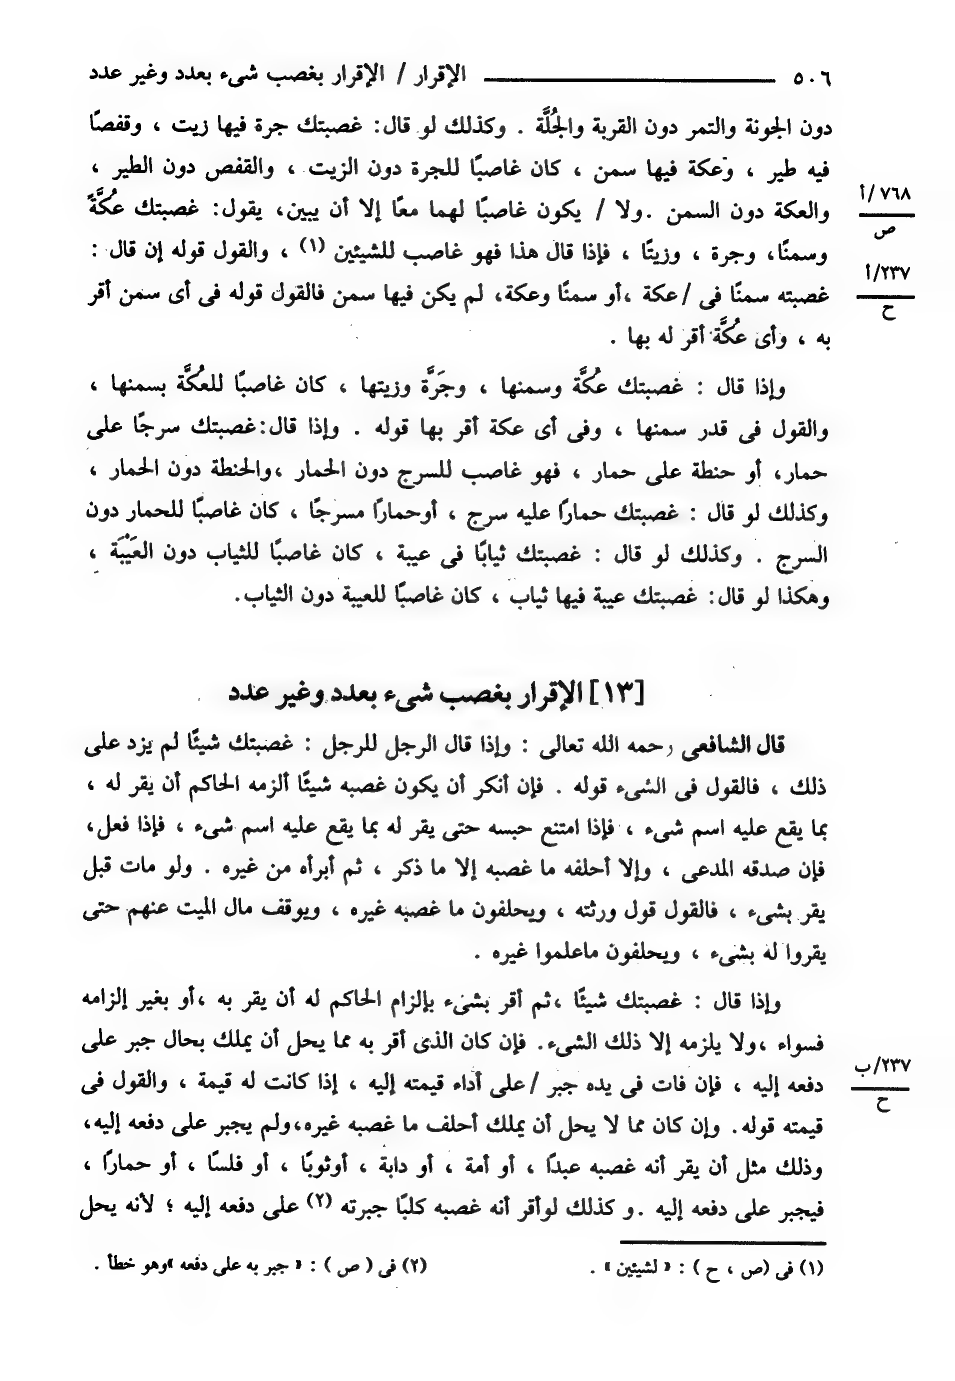 ٥٠٦ الإقرار / الإقرار بغصب شىء بعدد وغير عدد
دون الجونة والتمر دون القربة والجُلَّة . وكذلك لو قال: غصبتك جرة فيها زيت ، وقفصًا
فيه طير ، وعكة فيها سمن ، كان غاصبًا للجرة دون الزيت ، والقفص دون الطير ،
٧٦٨ /أ
والعكة دون السمن .ولا / يكون غاصبًا لهما معًا إلا أن يبين، يقول: غصبتك عُكَّةً
ص
وسمنًا، وجرة ، وزيتًا ، فإذا قال هذا فهو غاصب للشيئين (١) ، والقول قوله إن قال :
٢٣٧/أ
غصبته سمنًا فى /عكة ،أو سمنًا وعكة، لم يكن فيها سمن فالقول قوله فى أى سمن أقر
ح
به ، وأى عُكَّة أقر له بها .
وإذا قال : غصبتك عُكَّة وسمنها ، وجَرَّة وزيتها ، كان غاصبًا للعُكَّة بسمنها ،
والقول فى قدر سمنها ، وفى أى عكة أقر بها قوله . وإذا قال:غصبتك سرجًا على
حمار، أو حنطة على حمار ، فهو غاصب للسرج دون الحمار ،والحنطة دون الحمار ،
وكذلك لو قال : غصبتك حمارًا عليه سرج ، أوحمارًا مسرجًا ، كان غاصبًا للحمار دون
السرج . وكذلك لو قال : غصبتك ثيابًا فى عيبة ، كان غاصبًا للثياب دون العَيْبَة ،
وهكذا لو قال: غصبتك عيبة فيها ثياب ، كان غاصبًا للعيبة دون الثياب.
[١٣] الإقرار بغصب شىء بعدد وغير عدد
قال الشافعى رحمه الله تعالى : وإذا قال الرجل للرجل : غصبتك شيئًا لم يزد على
ذلك ، فالقول فى الشىء قوله . فإن أنكر أن يكون غصبه شيئًا ألزمه الحاكم أن يقر له ،
بما يقع عليه اسم شىء ، فإذا امتنع حبسه حتى يقر له بما يقع عليه اسم شىء ، فإذا فعل،
فإن صدقه المدعى ، وإلا أحلفه ما غصبه إلا ما ذكر ، ثم أبرأه من غيره . ولو مات قبل
يقر بشىء ، فالقول قول ورثته ، ويحلفون ما غصبه غيره ، ويوقف مال الميت عنهم حتى
يقروا له بشىء ، ويحلفون ماعلموا غيره .
وإذا قال : غصبتك شيئًا ،ثم أقر بشىء بإلزام الحاكم له أن يقر به ،أو بغير إلزامه
فسواء ،ولا يلزمه إلا ذلك الشىء. فإن كان الذى أقر به مما يحل أن يملك بحال جبر على
٢٣٧/ب
دفعه إليه ، فإن فات فى يده جبر /على أداء قيمته إليه ، إذا كانت له قيمة ، والقول فى
ح
قيمته قوله. وإن كان مما لا يحل أن يملك أحلف ما غصبه غيره،ولم يجبر على دفعه إليه،
وذلك مثل أن يقر أنه غصبه عبدًا ، أو أمة ، أو دابة ، أوثوبًا ، أو فلسًا ، أو حمارًا ،
فيجبر على دفعه إليه .و كذلك لوأقر أنه غصبه كلبًا جبرته (٢) على دفعه إليه ؛ لأنه يحل
(١) فى (ص ، ح ) : « لشيئين » .
(٢) فى ( ص ) : « جبر به على دفعه »وهو خطأ .